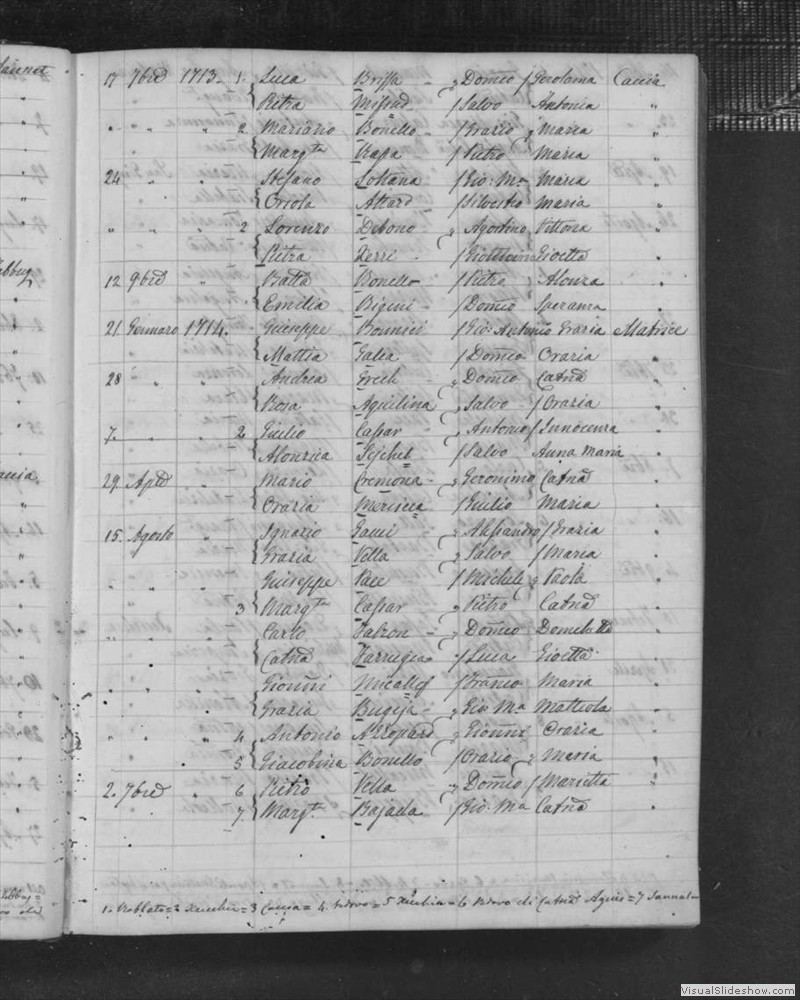 17 7bre 1713. 1. Luca Briffa „ Domco / Gerolama Caccia
Pietra Mifsud / Salvo Antonia „
„ „ „ 2 Mariano Bonello / Grazio „ Maria „
Margta Xapa / Pietro Maria „
24 „ „ Stefano Sultana / Gio: Ma Maria „
Orsola Attard / Silvestro Maria „
„ „ „ 2 Lorenzo Debono „ Agostino Vittoria „
Pietra Zerri / Gioetta „
12 9bre „ Batta Bonello / Pietro Alonza „
Emilia Bigeni / Domco Speranza „
21 Gennaro 1714. Giuseppe Bonnici / Gio: Antonio Grazia Matrice
Mattia Galea / Domco Oraria „
28 „ „ Andrea Grech „ Domco Catna „
Rosa Aquilina „ Salvo / Oraria „
7 „ 2 Giulio Cassar „ Antonio / Innocenza „
Alonzica / Salvo Anna Maria „
29 Aple Mario Cremona „ Geronimo Catna „
Oraria / Giulio Maria „
15 Agosto Ignazio Gauci „ Alessandro / Grazia „
Grazia Vella „ Salvo / Maria „
„ „ Giuseppe Pace / Michele „ Paola „
3 Margta Cassar „ Pietro Catna „
„ „ Carlo Falzon „ Domco Domclutta „
Catna Farrugia / Luca Gioetta „
„ „ Gionni Micallef / Franco Maria „
Grazia Bugeja „ Gio: Ma Mattiola „
„ „ „ 4 Antonio Azzopard „ Gionni Oraria „
5 Giacobina Bonello / Orazio „ Maria „
2. 7bre „ 6 Pietro Vella „ Domco / Marietta „
7 Margta. Bajada / Gio: Ma Catna „
1. Noblato = 2 Xeuchia = 3 Caccia = 4. Vedovo = 5 Xeuchia = 6 Vedovo di Catna Agius = 7 Sannat